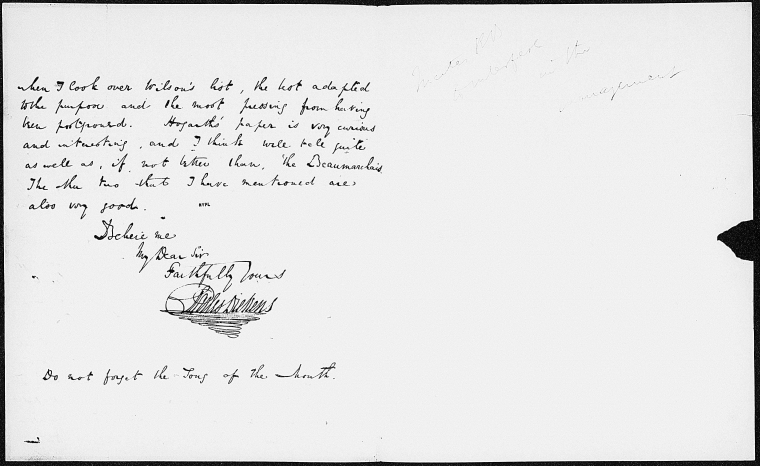 when I look over Wilson's list, the best adapted
to the purpose and the most pressing from having
been postponed. Hogarth's paper is very curious
and interesting, and I think will tell quite
as well as, if not better than, the Beaumarchais.
The other two that I have mentioned are
also very good.
Believe me
My Dear Sir
Faithfully Yours
Charles Dickens
Do not forget the Song of the Month.
in the
management